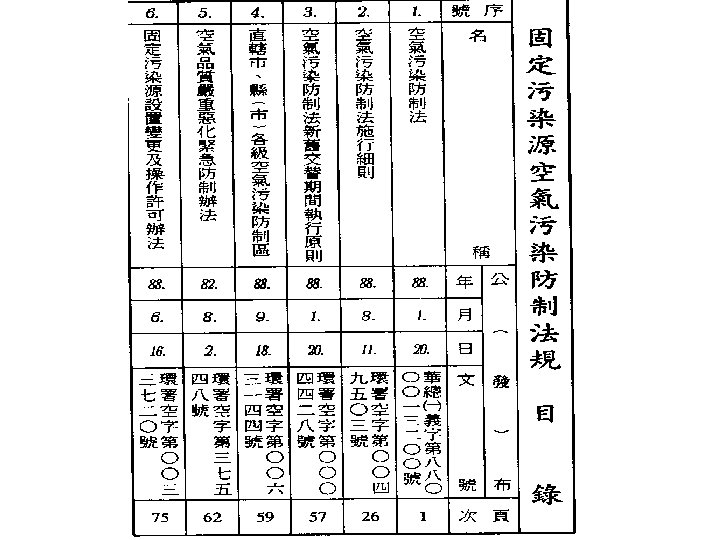 固定污染源空氣污染防制法規 目 錄
序號
名稱
公(發)布
年
月
日
文號
頁次
1.
空氣污染防制法
88.
1.
20.
華總㈠義字第八八〇
號
1
2.
空氣污染防制法施行細則
88.
8.
11.
環署空字第〇〇四
九五〇三號
26
3.
空氣污染防制法新舊交替期間執行原則
88.
1.
20.
環署空字第〇〇〇
四四二八號
57
4.
直轄市、縣(市)各級空氣污染防制區
88.
9.
18.
環署空字第〇〇六
三一四四號
59
5.
空氣品質嚴重惡化緊急防制辦法
82.
8.
2.
環署空字第三七五
四八號
62
6.
固定污染源設置變更及操作許可辦法
88.
6.
16.
環署空字第〇〇三
三七二〇號
75